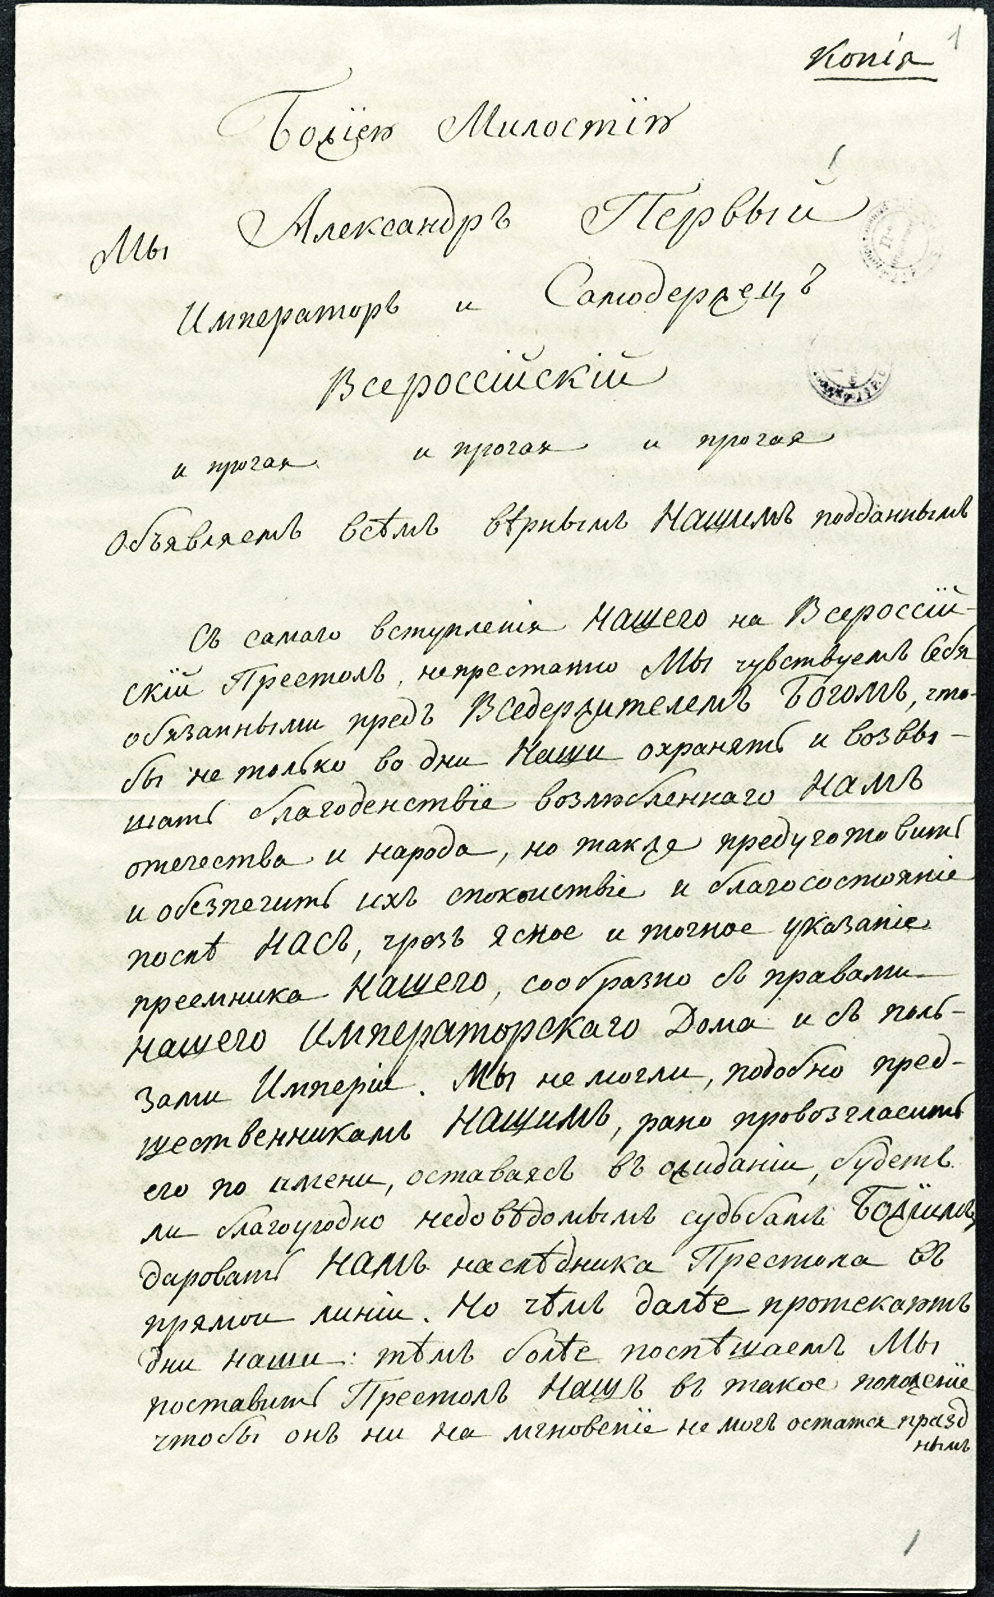 1
Копія
Божіею Милостію
Мы Александръ Первый
Императоръ и Самодержецъ
Всероссійскій
и прочая и прочая и прочая
Объявляемъ всѣмъ вѣрнымъ Нашимъ подданнымъ
Съ самаго вступленія Нашего на Всероссій-
скій Престолъ, непрестанно Мы чувствуемъ Себя
обязанными предъ Вседержителемъ Богомъ, что-
бы не только во дни Наши охранять и возвы-
шать благоденствіе возлюбленнаго Намъ
отечества и народа, но также предуготовить
и обезпечить ихъ спокоиствіе и благосостояніе
послѣ Насъ, чрезъ ясное и точное указаніе
преемника Нашего, сообразно съ правами
нашего Императорскаго Дома и съ поль-
зами Имперіи. Мы не могли, подобно пред-
шественникамъ Нашимъ, рано провозгласить
его по имени, оставаясь въ ожиданіи, будетъ
ли благоугодно недовѣдомымъ судьбамъ Божіимъ
даровать Намъ наслѣдника Престола въ
прямои линіи. Но чѣмъ далѣе протекаютъ
дни наши: тѣмъ болѣе поспѣшаемъ Мы
поставить Престолъ Нашъ въ такое положеніе
чтобы онъ ни на мгновеніе не могъ остатся празд
нымъ